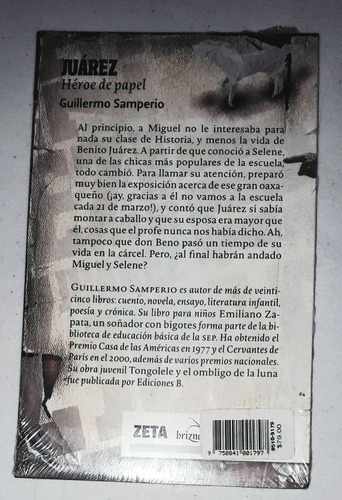 JUÁREZ
Héroe de papel
Guillermo Samperio
Al principio, a Miguel no le interesaba para
nada su clase de Historia, y menos la vida de
Benito Juárez. A partir de que conoció a Selene,
una de las chicas más populares de la escuela,
todo cambió. Para llamar su atención, preparó
muy bien la exposición acerca de ese gran oaxa-
queño (¡ay, gracias a él no vamos a la escuela
cada 21 de marzo!), y contó que Juárez sí sabía
montar a caballo y que su esposa era mayor que
él, cosas que el profe nunca nos había dicho. Ah,
tampoco que don Beno pasó un tiempo de su
vida en la cárcel. Pero, ¿al final habrán andado
Miguel y Selene?
GUILLERMO SAMPERIO es autor de más de veinti-
cinco libros: cuento, novela, ensayo, literatura infantil,
poesía y crónica. Su libro para niños Emiliano Za-
pata, un soñador con bigotes forma parte de la bi-
blioteca de educación básica de la SEP. Ha obtenido el
Premio Casa de las Américas en 1977 y el Cervantes de
París en el 2000, además de varios premios nacionales.
Su obra juvenil Tongolele y el ombligo de la luna
fue publicada por Ediciones B.
ZETA
9 750841 001797
0510-9179
$79.00